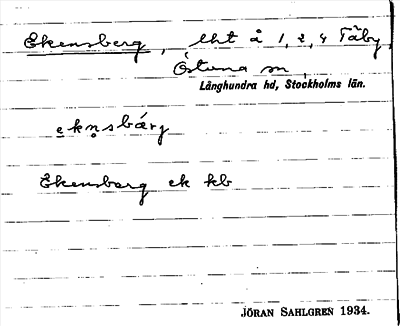 Ekensberg, lht å 1, 2, 4 Täby,
Östuna sn
Långhundra hd, Stockholms län.
ekn̥sbärg
Ekensbarg ek kb
JÖRAN SAHLGREN 1934.